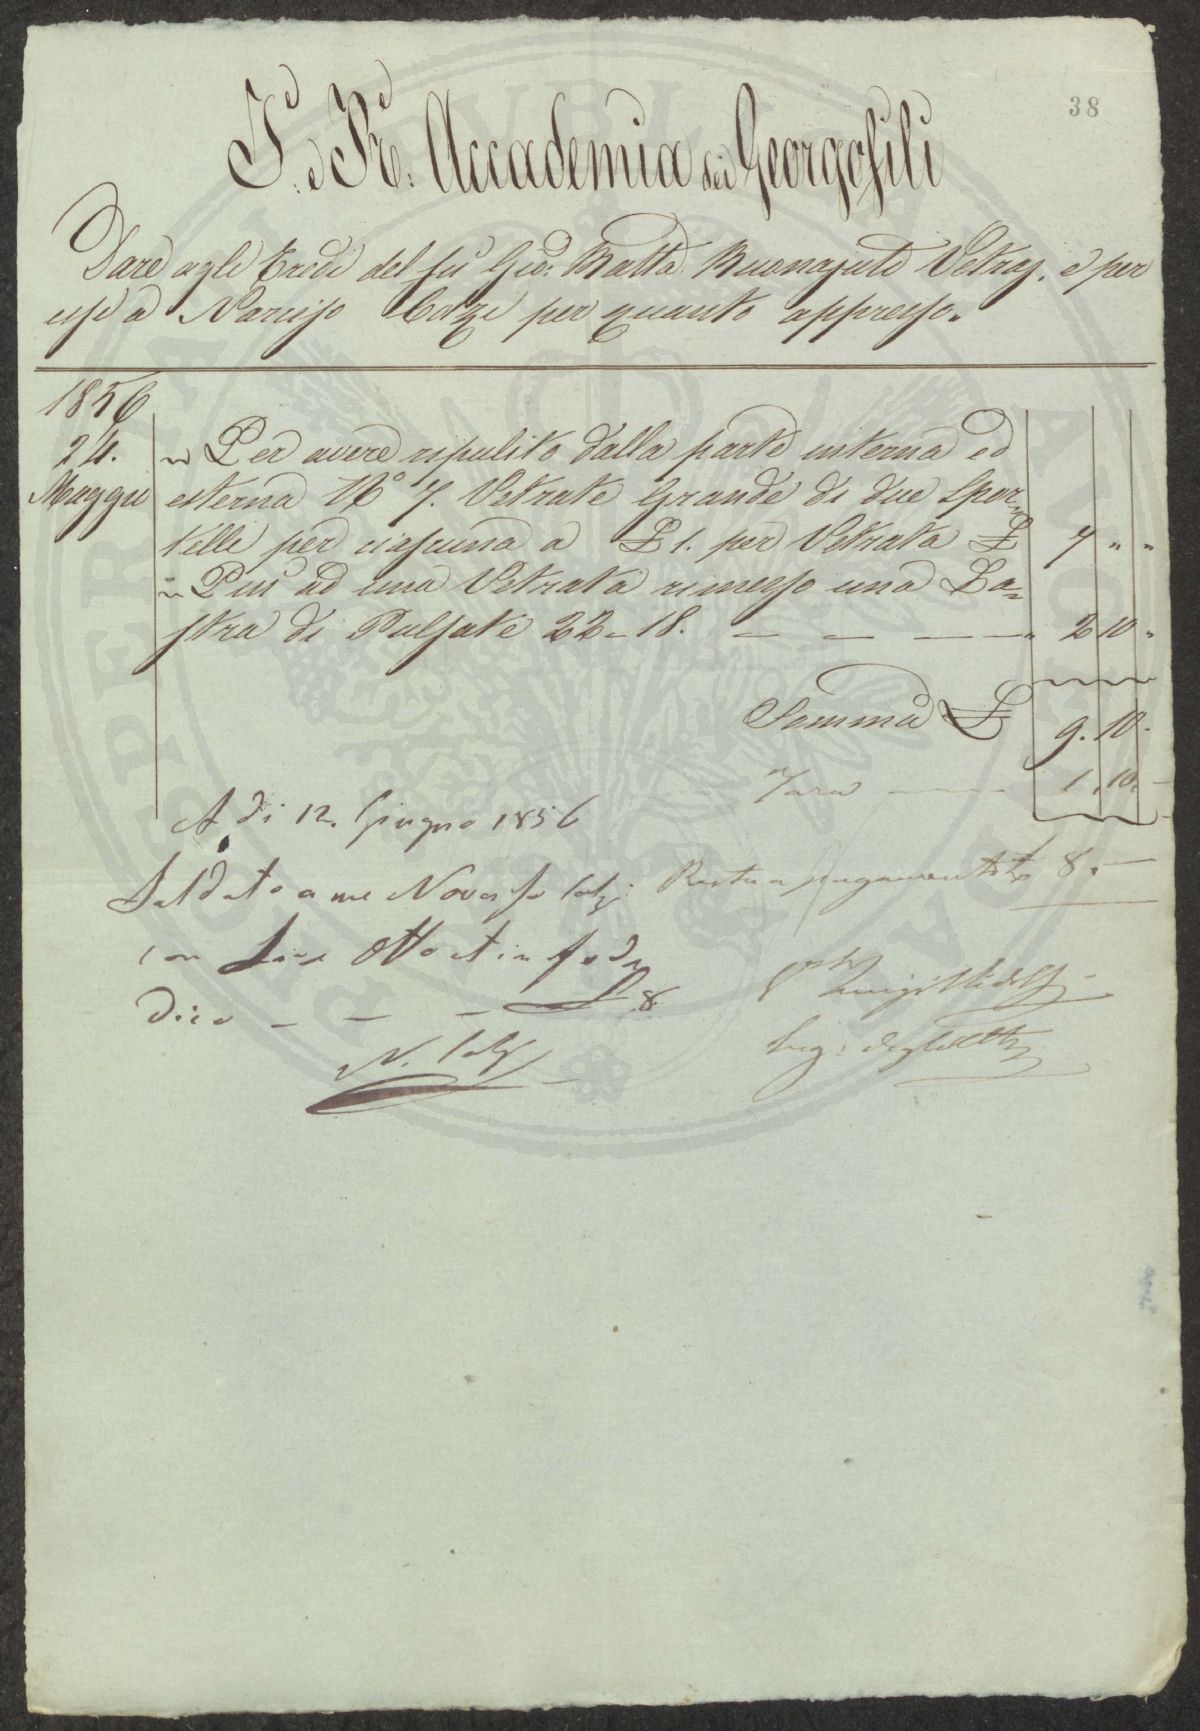 38
I. e R. Accademia dei Georgofili
Dare agli Eredi del fu Gio: Batta Buonajuti Vetraj. e per
essi a Narcisso Calzi per quanto appresso.
1856
24. Maggio
" Per avere ripulito dalla parte interna ed
esterna No 7. Vetrate Grande di due Spor-
telli per ciascuna a £ 1. per Vetrata £ 7 " "
" Piu ad una Vetrata rimesso una La-
stra di Pulsate 22-18. — — — — " 2 10 "
Somma £ 9. 10.
Tara — 1. 10. —
Resta a pagamento £ 8. —
A di 12. Giugno 1856
Saldato a me Narcisso Calzi
con Lire Otto
Dico — — — £ 8
N. Calzi